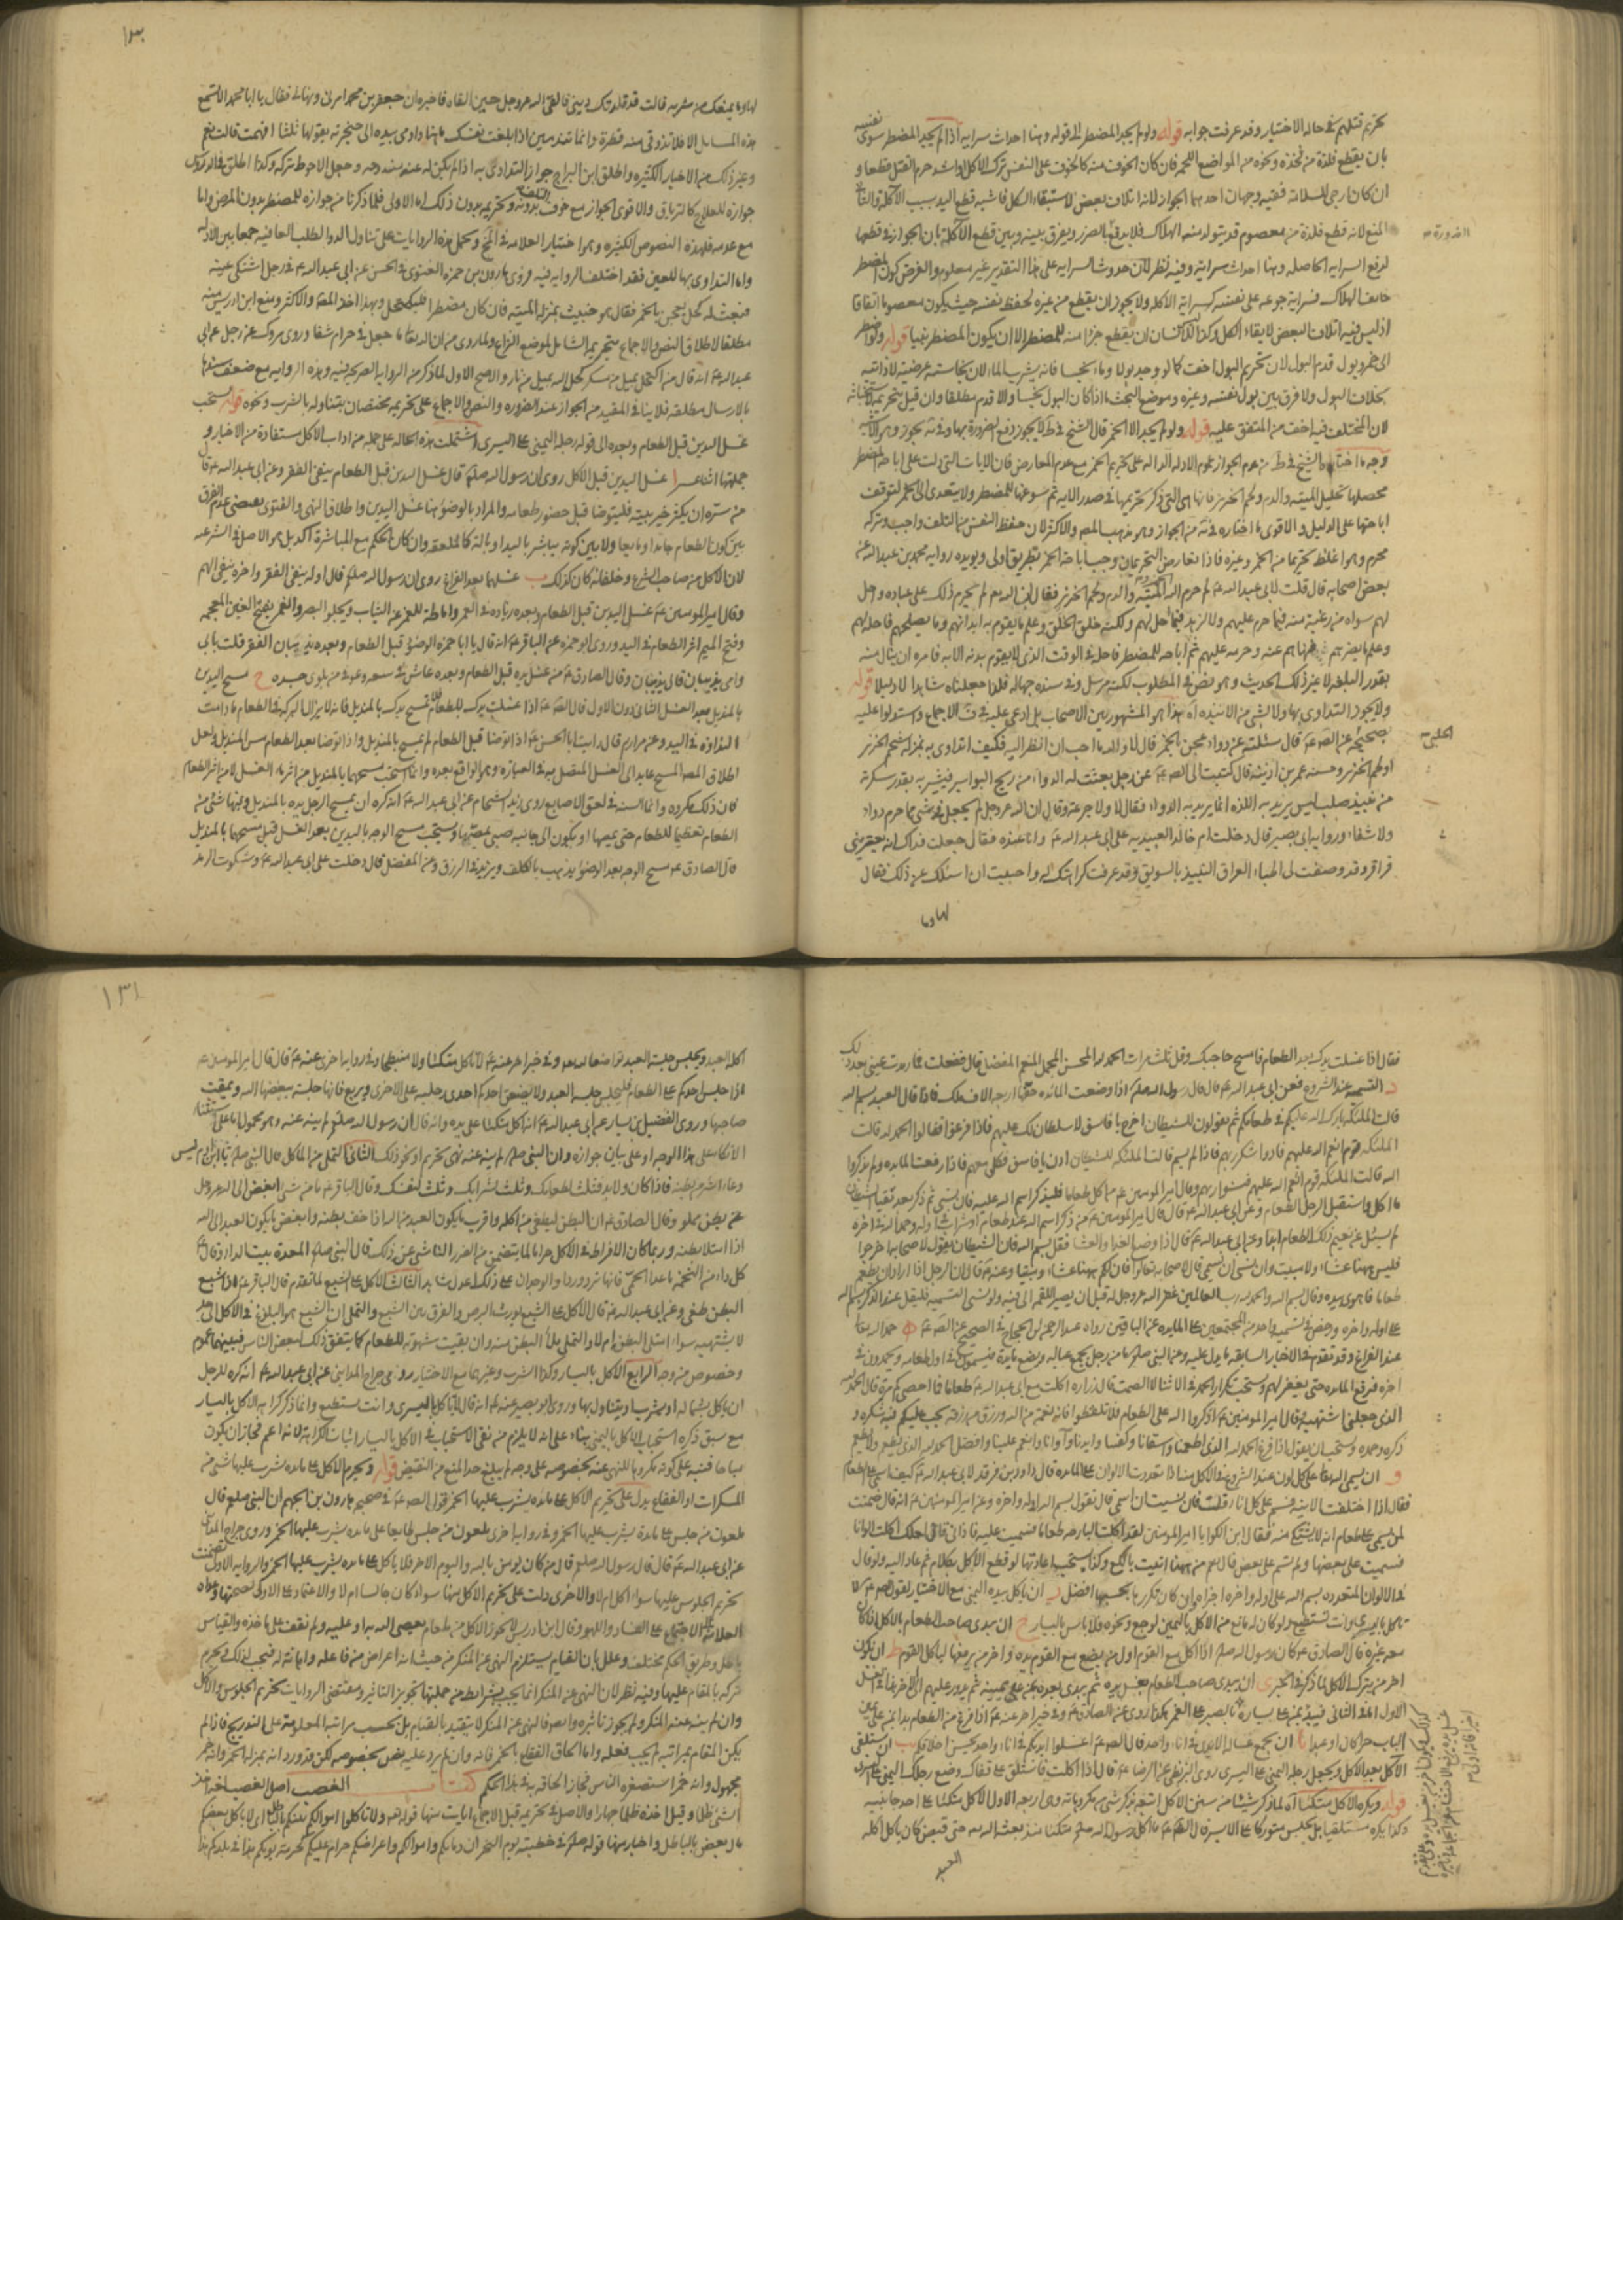 تحريم قتلهم في حالة الاختيار وقد عرفت جوابه قوله ولو لم يجد المضطر الى قوله وهنا احداث سراية اذا لم يجد المضطر سوى نفسه
بان يقطع فلذة من فخذه ونحوه من المواضع اللحمة فان كان الخوف منه كالخوف على النفس بترك الاكل او اشد حرم القطع قطعا و
ان كان ارجى للسلامة ففيه وجهان احدهما الجواز لانه اتلاف بعض لاستبقاء الكل فاشبه قطع اليد بسبب الآكلة والثاني
المنع لانه قطع فلذة من معصوم قد يتولد منه الهلاك فلا يدفع الضرر ويفرق بينه وبين قطع الآكلة بان الجواز في قطعها
لدفع السراية الحاصلة وهنا احداث سراية وفيه نظر لان حدوث السراية على هذا التقدير غير معلوم والفرض كون المضطر
خائف الهلاك فسراية جوعه على نفسه كسراية الآكلة ولا يجوز ان يقطع من غيره لحفظ نفسه حيث يكون معصوما اتفاقا
اذ ليس فيه اتلاف البعض لابقاء الكل وكذا للانسان ان يقطع جزءا منه للمضطر الا ان يكون المضطر نبيا قوله ولو اضطر
الى خمر وبول قدم البول لان تحريم البول اخف كما لو وجد بولا وماء نجسا فانه يشرب الماء لان نجاسته عرضية لا ذاتية
بخلاف البول ولا فرق بين بول نفسه وغيره وموضع البحث ما اذا كان البول نجسا والا قدم مطلقا وان قيل بتحريمه لاستخباثه
لان المختلف فيه اخف من المتفق عليه قوله ولو لم يجد الا الخمر قال الشيخ في ط لا يجوز دفع الضرورة بها وفي يه يجوز وهو الاشبه
وجه ما اختاره الشيخ في ط من عدم الجواز عموم الادلة الدالة على تحريم الخمر مع عدم المعارض فان الايات التي دلت على اباحة المضطر
محصلها تحليل الميتة والدم ولحم الخنزير فانها هي التي ذكر تحريمها في صدر الآية ثم سوغها للمضطر ولا يتعدى الى الخمر لتوقف
اباحتها على الدليل والاقوى ما اختاره في يه من الجواز وهو مذهب المصـ والاكثر لان حفظ النفس من التلف واجب وتركه
محرم وهو اغلظ تحريما من الخمر وغيره فاذا تعارض التحريمان وجب اباحة الخمر بطريق اولى ويؤيده رواية محمد بن عبد الله عن
بعض اصحابه قال قلت لابي عبد الله ع لم حرم الله الميتة والدم ولحم الخنزير فقال ان الله لم يحرم ذلك على عباده واحل
لهم سواه من رغبة منه فيما حرم عليهم ولا زهد فيما احل لهم ولكنه خلق الخلق وعلم ما يقوم به ابدانهم وما يصلحهم فاحله لهم
وعلم ما يضرهم فنهاهم عنه وحرمه عليهم ثم اباحه للمضطر فاحله في الوقت الذي لا يقوم بدنه الا به فامره ان ينال منه
بقدر البلغة لا غير ذلك الحديث وهو نص في المطلوب لكنه مرسل وفي سنده جهالة فلذا جعلناه شاهدا لا دليلا قوله
ولا يجوز التداوي بها ولا بشي من الانبذة اه هذا هو المشهور بين الاصحاب بل ادعى عليه في ف الاجماع واستدلوا عليه
بصحيحة الحلبي عن الصـ ع قال سئلته عن دواء عجن بالخمر قال لا والله ما احب ان انظر اليه فكيف اتداوى به بمنزلة شحم الخنزير
او لحم الخنزير وحسنة عمر بن اذينة قال كتبت الى الصـ ع عن رجل بعثت له الدواء من ريح البواسير فيشربه بقدر سكرجة
من نبيذ صلب ليس يريد به اللذة انما يريد به الدواء فقال لا ولا جرعة وقال ان الله عز وجل لم يجعل في شي مما حرم دواء
ولا شفاء ورواية ابي بصير قال دخلت ام خالد العبدية على ابي عبد الله ع وانا عنده فقال جعلت فداك انه يعتريني
قراقر وقد وصفت لي اطباء العراق النبيذ بالسويق وقد عرفت كراهتك له واحببت ان اسئلك عن ذلك فقال
لها وما
١٣٠
لها وما يمنعك من شربه قالت قد قلدتك ديني فالقى الله عز وجل حين القاه فاخبره ان جعفر بن محمد امرني ونهاني فقال يا ابا محمد الا تسمع
هذه المسايل الا فلا تذوقي منه قطرة وانما تندمين اذا بلغت نفسك ههنا واومى بيده الى حنجرته يقولها ثلثا افهمت قالت نعم
وغير ذلك من الاخبار الكثيرة واطلق ابن البراج جواز التداوي به اذا لم يكن له عنه مندوحة وجعل الاحوط تركه وكذا اطلق في الدروس
جوازه للعلاج كالترياق والاقوى الجواز مع خوف التلف بدونه وتحريمه بدون ذلك اما الاولى فلما ذكرنا من جوازه للمضطر بدون المرض واما
مع عدمه فلهذه النصوص الكثيرة وهو اختيار العلامة في المخ وتحمل هذه الروايات على تناول الدواء لطلب العافية جمعا بين الادلة
واما التداوي بها للعين فقد اختلف الرواية فيه فروى هارون بن حمزه الغنوي في الحسن عن ابي عبد الله ع في رجل اشتكى عينه
فبعث له بكحل يعجن بالخمر فقال هو خبيث بمنزلة الميتة فان كان مضطرا فليكتحل وبهذا اخذ المصـ والاكثر ومنع ابن ادريس منه
مطلقا لاطلاق النص والاجماع بتحريمه الشامل لموضع النزاع ولما روى من ان الله تعالى ما جعل في حرام شفاء وروى مروك عن رجل عن ابي
عبد الله ع انه قال من اكتحل بميل من مسكر كحله الله بميل من نار والاصح الاول لما ذكر من الرواية الصريحة فيه وهذه الرواية مع ضعف سندها
بالارسال مطلقة فلا ينافي المقيد من الجواز عند الضرورة والنص والاجماع على تحريمه مختصان بتناوله بالشرب ونحوه قوله يستحب
غسل اليدين قبل الطعام وبعده الى قوله رجله اليمنى على اليسرى اشتملت هذه الحالة على جملة من اداب الاكل مستفادة من الاخبار و
جملتها اثنا عشر ا غسل اليدين قبل الاكل روى ان رسول الله صلعم قال غسل اليدين قبل الطعام ينفي الفقر وعن ابي عبد الله ع قال
من سره ان يكثر خير بيته فليتوضا قبل حضور طعامه والمراد بالوضوء هنا غسل اليدين واطلاق النص والفتوى يقتضي عدم الفرق
بين كون الطعام جامدا ومايعا ولا بين كونه يباشر باليد او بآلة كالملعقة وان كان الحكم مع المباشرة آكد بل هو الاصل في الشرعية
لان الاكل من صاحب الشرع وخلفائه كان كذلك ب غسلهما بعد الفراغ روى ان رسول الله صلعم قال اوله ينفي الفقر واخره ينفي الهم
وقال امير المومنين ع غسل اليدين قبل الطعام وبعده زيادة في العمر واماطة للغمر عن الثياب ويجلو البصر والغمر بفتح الغين المعجمة
وفتح الميم اثر الطعام في اليد وروى ابو حمزه عن الباقر ع انه قال يا ابا حمزه الوضوء قبل الطعام وبعده يذيبان الفقر قلت بابي
وامي يذيبان قال يذيبان وقال الصادق ع من غسل يده قبل الطعام وبعده عاش في سعة وعوفي من بلوى جسده ج مسح اليدين
بالمنديل بعد الغسل الثاني دون الاول قال الصـ ع اذا غسلت يدك للطعام فلا تمسح يدك بالمنديل فانه لا يزال البركة في الطعام ما دامت
النداوة في اليد وعن مرازم قال رايت ابا الحسن ع اذا توضا قبل الطعام لم يمسح بالمنديل واذا توضا بعد الطعام مس المنديل ولعل
اطلاق المصـ المسح عايد الى الغسل المتصل به في العبارة وهو الواقع بعده وانما يستحب مسحهما بالمنديل من اثر ماء الغسل لا من اثر الطعام
فان ذلك مكروه وانما السنة في لعق الاصابع روى زيد الشحام عن ابي عبد الله ع انه كره ان يمسح الرجل يده بالمنديل وفيها شئ من
الطعام تعظيما للطعام حتى يمصها او يكون الى جانبه صبي يمصها ويستحب مسح الوجه باليدين بعد الغسل قبل مسحهما بالمنديل
قال الصادق ع مسح الوجه بعد الوضوء يذهب بالكلف ويزيد في الرزق وعن المفضل قال دخلت على ابي عبد الله ع وشكوت الرمد
فقال اذا غسلت يدك بعد الطعام فامسح حاجبيك وقل ثلث مرات الحمد لله المحسن المجمل المنعم المفضل قال ففعلت فما رمدت عيني بعد ذلك
د التسمية عند الشروع فعن ابي عبد الله ع قال قال رسول الله صلعم اذا وضعت المائدة حفها اربعة الاف ملك فاذا قال العبد بسم الله
قالت الملئكة بارك الله عليكم في طعامكم ثم يقولون للشيطان اخرج يا فاسق لا سلطان لك عليهم فاذا فرغوا فقالوا الحمد لله قالت
الملئكة قوم انعم الله عليهم فادوا شكر ربهم فاذا لم يسم قالت الملئكة للشيطان ادن يا فاسق فكل معهم فاذا رفعت المايدة ولم يذكروا
الله قالت الملئكة قوم انعم الله عليهم فنسوا ربهم وقال امير المومنين ع من اكل طعاما فليذكر اسم الله عليه فان نسي ثم ذكر بعد تقيأ الشيطان
ما اكل واستقبل الرجل الطعام وعن ابي عبد الله ع قال قال امير المومنين ع من ذكر اسم الله عند طعام او شراب في اوله وحمد الله في اخره
لم يسئل عن نعيم ذلك الطعام ابدا وعن ابي عبد الله ع قال اذا وضع الغداء والعشاء فقل بسم الله فان الشيطان يقول لاصحابه اخرجوا
فليس ههنا عشاء ولا مبيت وان نسي ان يسمي قال لاصحابه تعالوا فان لكم ههنا عشاء ومبيتا وعنه ع قال ان الرجل اذا اراد ان يطعم
طعاما فاهوى بيده وقال بسم الله والحمد لله رب العالمين غفر الله عز وجل له قبل ان يصير اللقمة الى فيه ولو نسي التسمية فليقل عند الذكر بسم الله
على اوله واخره ورخص في تسمية واحد من المجتمعين على المايدة عن الباقين رواه عبد الرحمن بن الحجاج في الصحيح عن الصـ ع ه حمد الله تعالى
عند الفراغ وقد تقدم في الاخبار السابقة ما يدل عليه وعن النبي صلعم ما من رجل يجمع عياله ويضع مايدة فيسمون في اول طعامه ويحمدون في
اخره فترفع المايدة حتى يغفر لهم ويستحب تكرار الحمد في الاثناء لا الصمت قال زراره اكلت مع ابي عبد الله ع طعاما فما احصي كم مرة قال الحمد لله
الذي جعلني اشتهيه وقال امير المومنين ع اذكروا الله على الطعام ولا تلغطوا فانه نعمة من الله ورزق من رزقه يجب عليكم فيه شكره و
ذكره وحمده ويستحب ان يقول اذا فرغ الحمد لله الذي اطعمنا وسقانا وكفانا وايدنا وآوانا وانعم علينا وافضل الحمد لله الذي يطعم ولا يطعم
و ان يسمي الله تعالى على كل لون عند الشروع في الاكل منه اذا تعددت الالوان على المائدة قال داود بن فرقد لابي عبد الله ع كيف اسمي على الطعام
فقال اذا اختلفت الانية فسم على كل اناء قلت فان نسيت ان اسمي قال تقول بسم الله اوله واخره وعن امير المومنين ع انه قال ضمنت
لمن يسمي على طعام انه لا يشتكي منه فقال ابن الكوا يا امير المومنين لقد اكلت البارحة طعاما فسميت عليه فاذاني قال لعلك اكلت الوانا
فسميت على بعضها ولم تسم على بعض قال نعم من ههنا اتيت يا لكع وكذا يستحب اعادتها لو قطع الاكل بكلام ثم عاد اليه ولو قال
في الالوان المتعددة بسم الله على اوله واخره اجزاه وان كان تكررها بحسبها افضل ز ان ياكل بيده اليمنى مع الاختيار لقول الصـ ع لا
تاكل باليسرى وانت تستطيع ولو كان له مانع من الاكل باليمين لوجع ونحوه فلا باس باليسار ح ان يبدى صاحب الطعام بالاكل اذا كان
معه غيره قال الصادق ع كان رسول الله صلعم اذا اكل مع القوم اول من يضع مع القوم يده واخر من يرفعها لياكل القوم ط ان يكون
اخر من يترك الاكل لما ذكر في الخبر ي ان يبدى صاحب الطعام بغسل يده ثم يبدى بعده بمن على يمينه ثم يدور عليهم الى الاخر في الغسل
الاول اما في الثاني فيبدى بمن على يساره ... هكذا روى عن الصادق ع وفي خبر اخر عنه ع اذا فرغ من الطعام بدا بمن على يمين
الباب حرا كان او عبدا يا ان يجمع غسالة الايدي في اناء واحد قال الصـ ع اغسلوا ايديكم في اناء واحد تحسن اخلاقكم يب ان يستلقي
الآكل بعد الاكل ويجعل رجله اليمنى على اليسرى روى البزنطي عن الرضا ع قال اذا اكلت فاستلق على قفاك وضع رجلك اليمنى على اليسرى
قوله ويكره الاكل متكئا اه لما ذكر شيئا من سنن الاكل اتبعه بذكر شي من مكروهاته وهي اربعة الاول الاكل متكئا على احد جانبيه
وكذا يكره مستلقيا بل يجلس متوركا على الايسر قال الصـ ع ما اكل رسول الله صلعم متكئا منذ بعثه الله حتى قبض كان ياكل اكلة
العبد
١٣١
اكلة العبد ويجلس جلسة العبد تواضعا لله وفي خبر اخر عنه ع لا تاكل متكئا ولا منبطحا وفي رواية اخرى عنه ع قال قال امير المومنين ع
اذا جلس احدكم على الطعام فليجلس جلسة العبد ولا يضعن احدكم احدى رجليه على الاخرى ويربع فانها جلسة يبغضها الله ويمقت
صاحبها وروى الفضيل بن يسار عن ابي عبد الله ع انه اكل متكئا على يده وانه قال ان رسول الله صلعم لم ينه عنه وهو محمول اما على استثناء
الاتكاء على هذا الوجه او على بيان جوازه وان النبي صلعم لم ينه عنه نهي تحريم او نحو ذلك الثاني التملي من الماكل قال النبي صلعم ما ملا ابن ادم ليس
وعاء اشر من بطنه فاذا كان ولا بد فثلث لطعامك وثلث لشرابك وثلث لنفسك وقال الباقر ع ما من شي ابغض الى الله عز وجل
من بطن مملو وقال الصادق ع ان البطن ليطغى من اكله واقرب ما يكون العبد من الله اذا خف بطنه وابغض ما يكون العبد الى الله
اذا امتلا بطنه وربما كان الافراط في الاكل حراما لما يتضمن من الضرر الناشي عن ذلك قال النبي صلعم المعدة بيت الداء وقال
كل داء من التخمة ما عدا الحمى فانها ترد ورودا والوجدان على ذلك اعدل شاهد الثالث الاكل على الشبع لما تقدم قال الباقر ع اذا شبع
البطن طغى وعن ابي عبد الله ع قال الاكل على الشبع يورث البرص والفرق بين الشبع والتملي ان الشبع هو البلوغ في الاكل الى حد
لا يشتهيه سواء امتلى البطن ام لا والتملي ملأ البطن منه وان بقيت شهوته للطعام كما يتفق ذلك لبعض الناس فبينهما عموم
وخصوص من وجه الرابع الاكل باليسار وكذا الشرب وغيرهما مع الاختيار روى جراح المدايني عن ابي عبد الله ع انه كره للرجل
ان ياكل بشماله او يشرب او يتناول بها وروى ابو بصير عنه ع انه قال لا تاكل باليسرى وانت تستطيع وانما ذكر كراهة الاكل باليسار
مع سبق ذكره استحباب الاكل باليمنى بناء على انه لا يلزم من نفي الاستحباب في الاكل باليسار اثبات الكراهة لانه اعم فجاز ان يكون
مباحا فنبه على كونه مكروها للنهي عنه بخصوصه على وجه لم يبلغ حد المنع من النقيض قوله ويحرم الاكل على مايدة يشرب عليها شي من
المسكرات او الفقاع يدل على تحريم الاكل على مايدة يشرب عليها الخمر قول الصـ ع في صحيح هارون بن الجهم ان النبي صلعم قال
ملعون من جلس على مايدة يشرب عليها الخمر وفي رواية اخرى ملعون من جلس طايعا على مايدة يشرب عليها الخمر وروى جراح المدايني
عن ابي عبد الله ع قال قال رسول الله صلعم من كان يومن بالله واليوم الاخر فلا ياكل على مايدة يشرب عليها الخمر والرواية الاولى تضمنت
تحريم الجلوس عليها سواء اكل ام لا والاخرى دلت على تحريم الاكل منها سواء كان جالسا ام لا والاعتماد على الاولى لصحتها وعداه
العلامة الى الاجتماع على الفساد واللهو وقال ابن ادريس لا يجوز الاكل من طعام يعصى الله به او عليه ولم نقف على ماخذه والقياس
باطل وطريق الحكم مختلف وعلل بان القيام يستلزم النهي عن المنكر من حيث انه اعراض عن فاعله واهانة له فيجب لذلك ويحرم
تركه بالمقام عليها وفيه نظر لان النهي عن المنكر انما يجب بشرائط من جملتها تجويز التاثير ومقتضى الروايات تحريم الجلوس والاكل
وان لم ينه عن المنكر ولم يجوز تاثيره وايضا فالنهي عن المنكر لا يتقيد بالقيام بل بحسب مراتبه المعلومة على التدريج فاذا لم
يكن المقام من مراتبه لم يجب فعله واما الحاق الفقاع بالخمر فانه وان لم يرد عليه نص بخصوصه لكن قد ورد انه بمنزلة الخمر وانه خمر
مجهول وانه خمر استصغره الناس فجاز الحاقه به في هذا الحكم كتاب الغصب اصل الغصب اخذ
الشي ظلما وقيل اخذه ظلما جهارا والاصل في تحريمه قبل الاجماع ايات منها قوله تعالى ولا تاكلوا اموالكم بينكم بالباطل اي لا ياكل بعضكم
مال بعض بالباطل واخبار منها قوله صلعم في خطبته يوم النحر ان دماءكم واموالكم واعراضكم حرام عليكم كحرمة يومكم هذا في بلدكم هذا